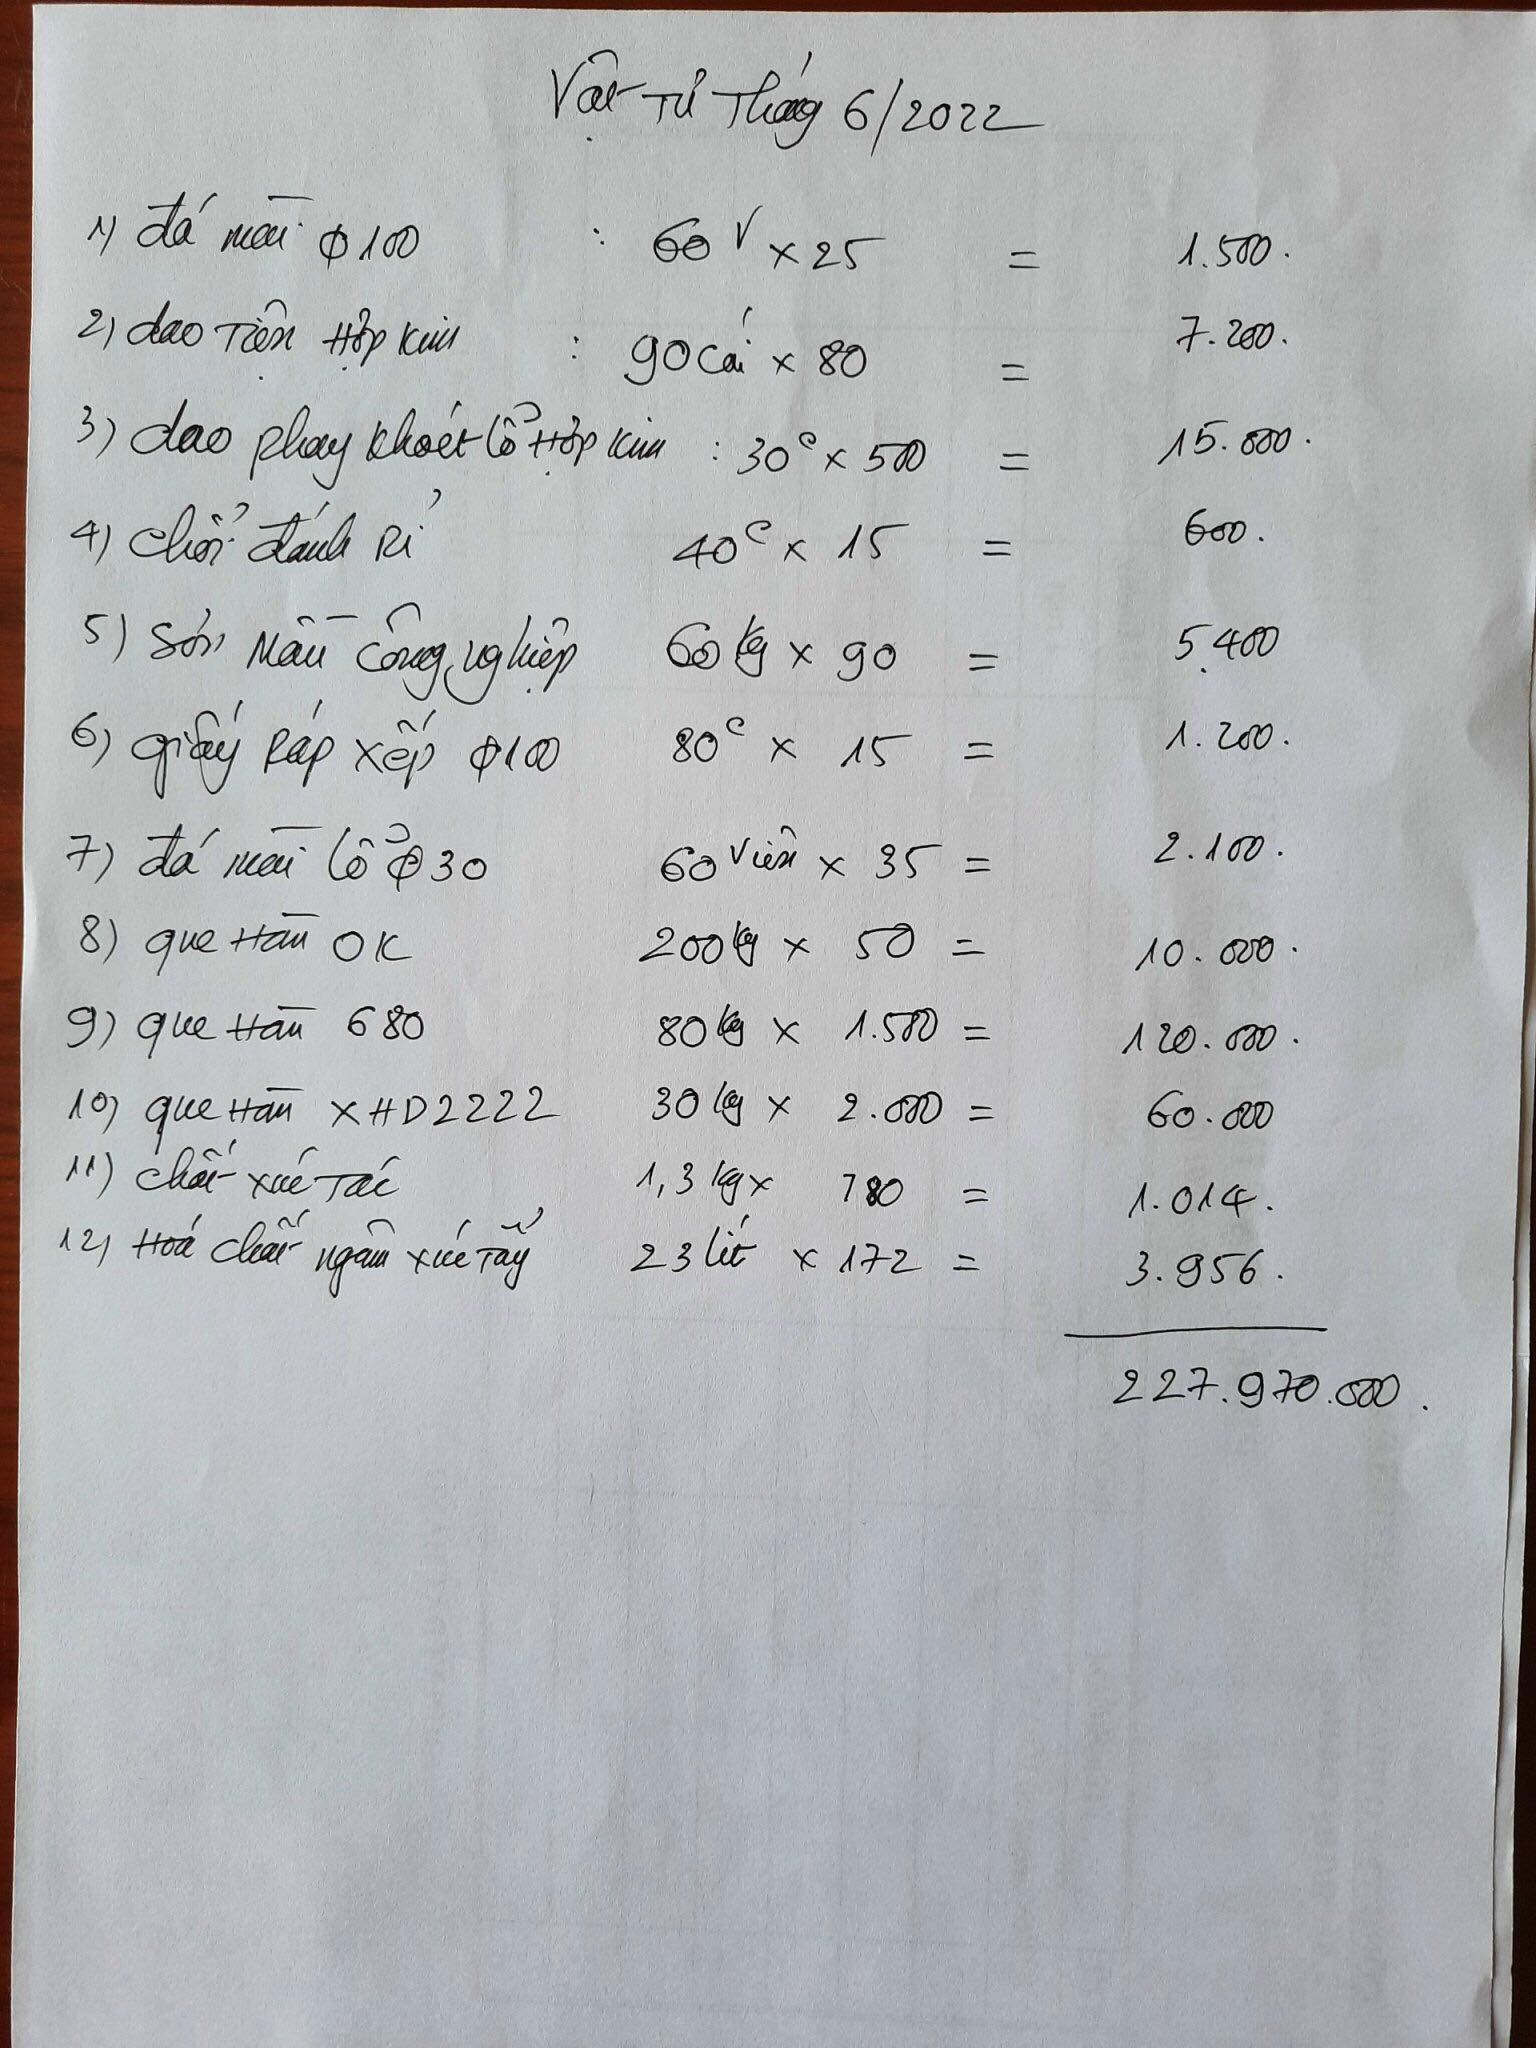 Vật Tư Tháng 6/2022
1) đá mài φ100 : 60 V x 25 = 1.500.
2) dao Tiện Hợp Kim : 90 cái x 80 = 7.200.
3) dao phay khoét lỗ Hợp Kim : 30 c x 500 = 15.000.
4) chổi đánh Rỉ 40 c x 15 = 600.
5) Sơn Màu công nghiệp 60 kg x 90 = 5.400
6) giấy Ráp xếp φ100 80 c x 15 = 1.200.
7) đá mài lỗ φ30 60 Viên x 35 = 2.100.
8) que Hàn OK 200 kg x 50 = 10.000.
9) que Hàn 680 80 kg x 1.500 = 120.000.
10) que Hàn XHD2222 30 kg x 2.000 = 60.000
11) chất xúc Tác 1,3 kg x 780 = 1.014.
12) Hoá chất ngâm xúc Tẩy 23 lít x 172 = 3.956.
227.970.000.